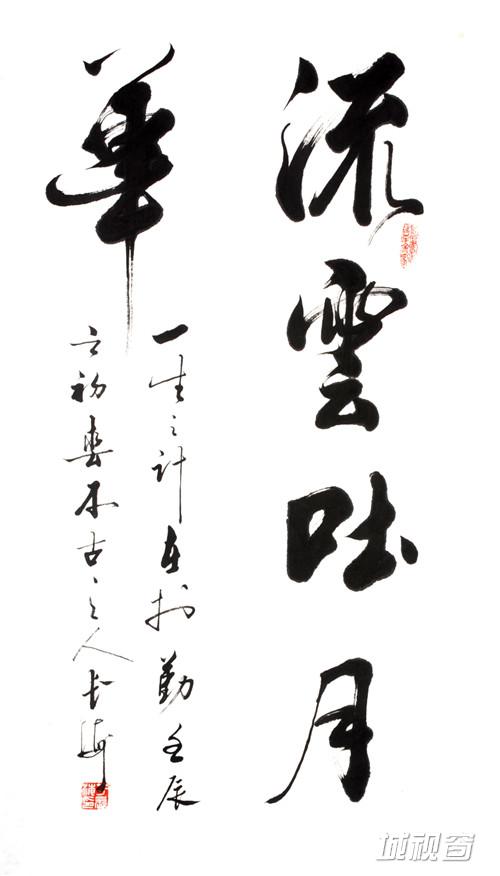 流雲吐月
華
一生之計在於勤壬辰
之初 古之人長海
城视窗